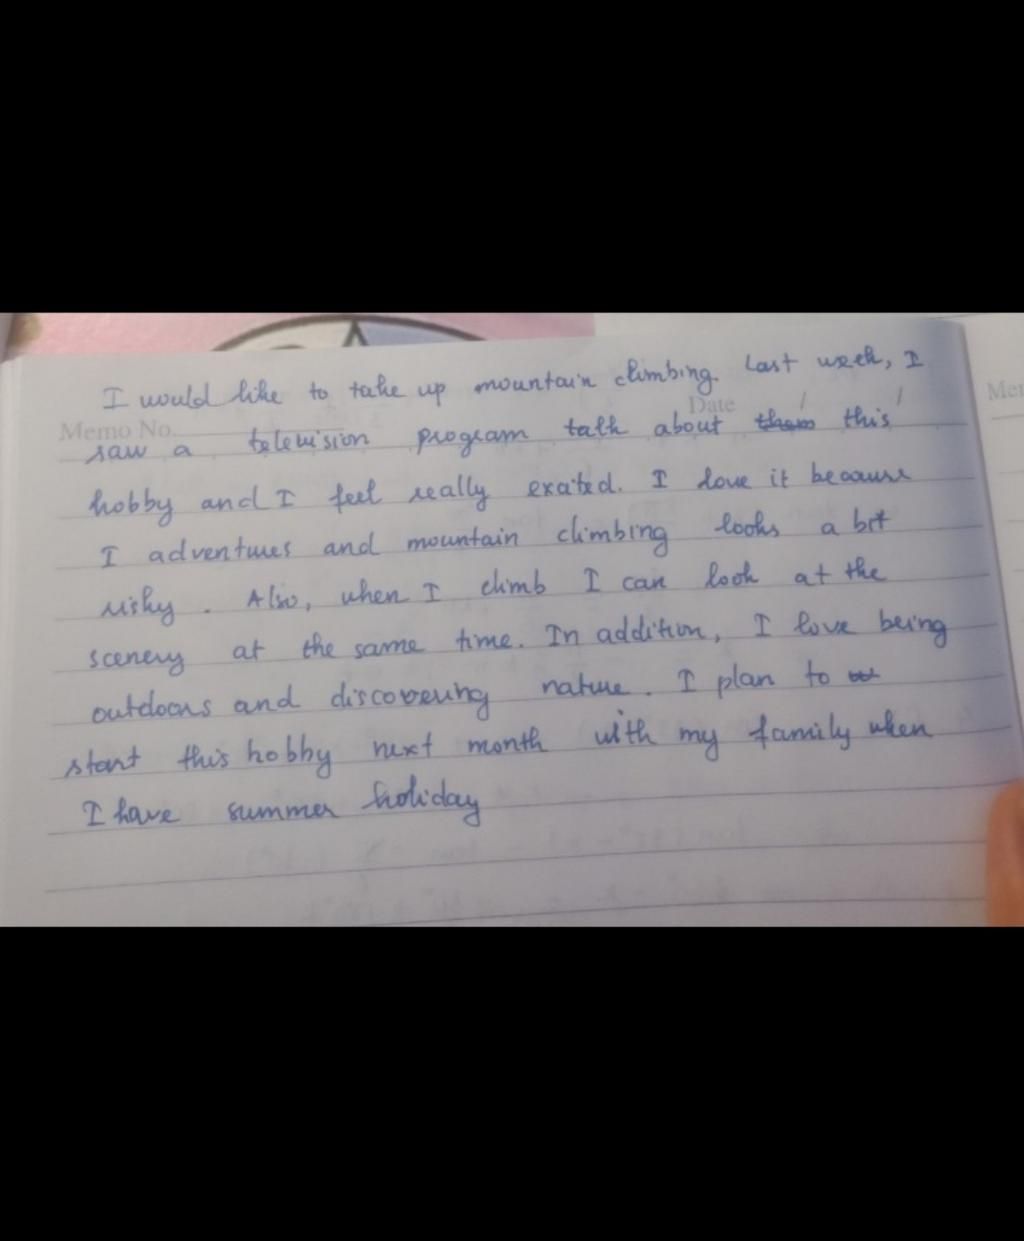 I would like to take up mountain climbing. Last week, I
Date / /
Memo No.
saw a television program talk about them this
hobby and I feel really exated. I love it because
I adventures and mountain climbing looks a bit
risky. Also, when I climb I can look at the
scenery at the same time. In addition, I love being
outdoors and discovering nature. I plan to
start this hobby next month with my family when
I have summer holiday